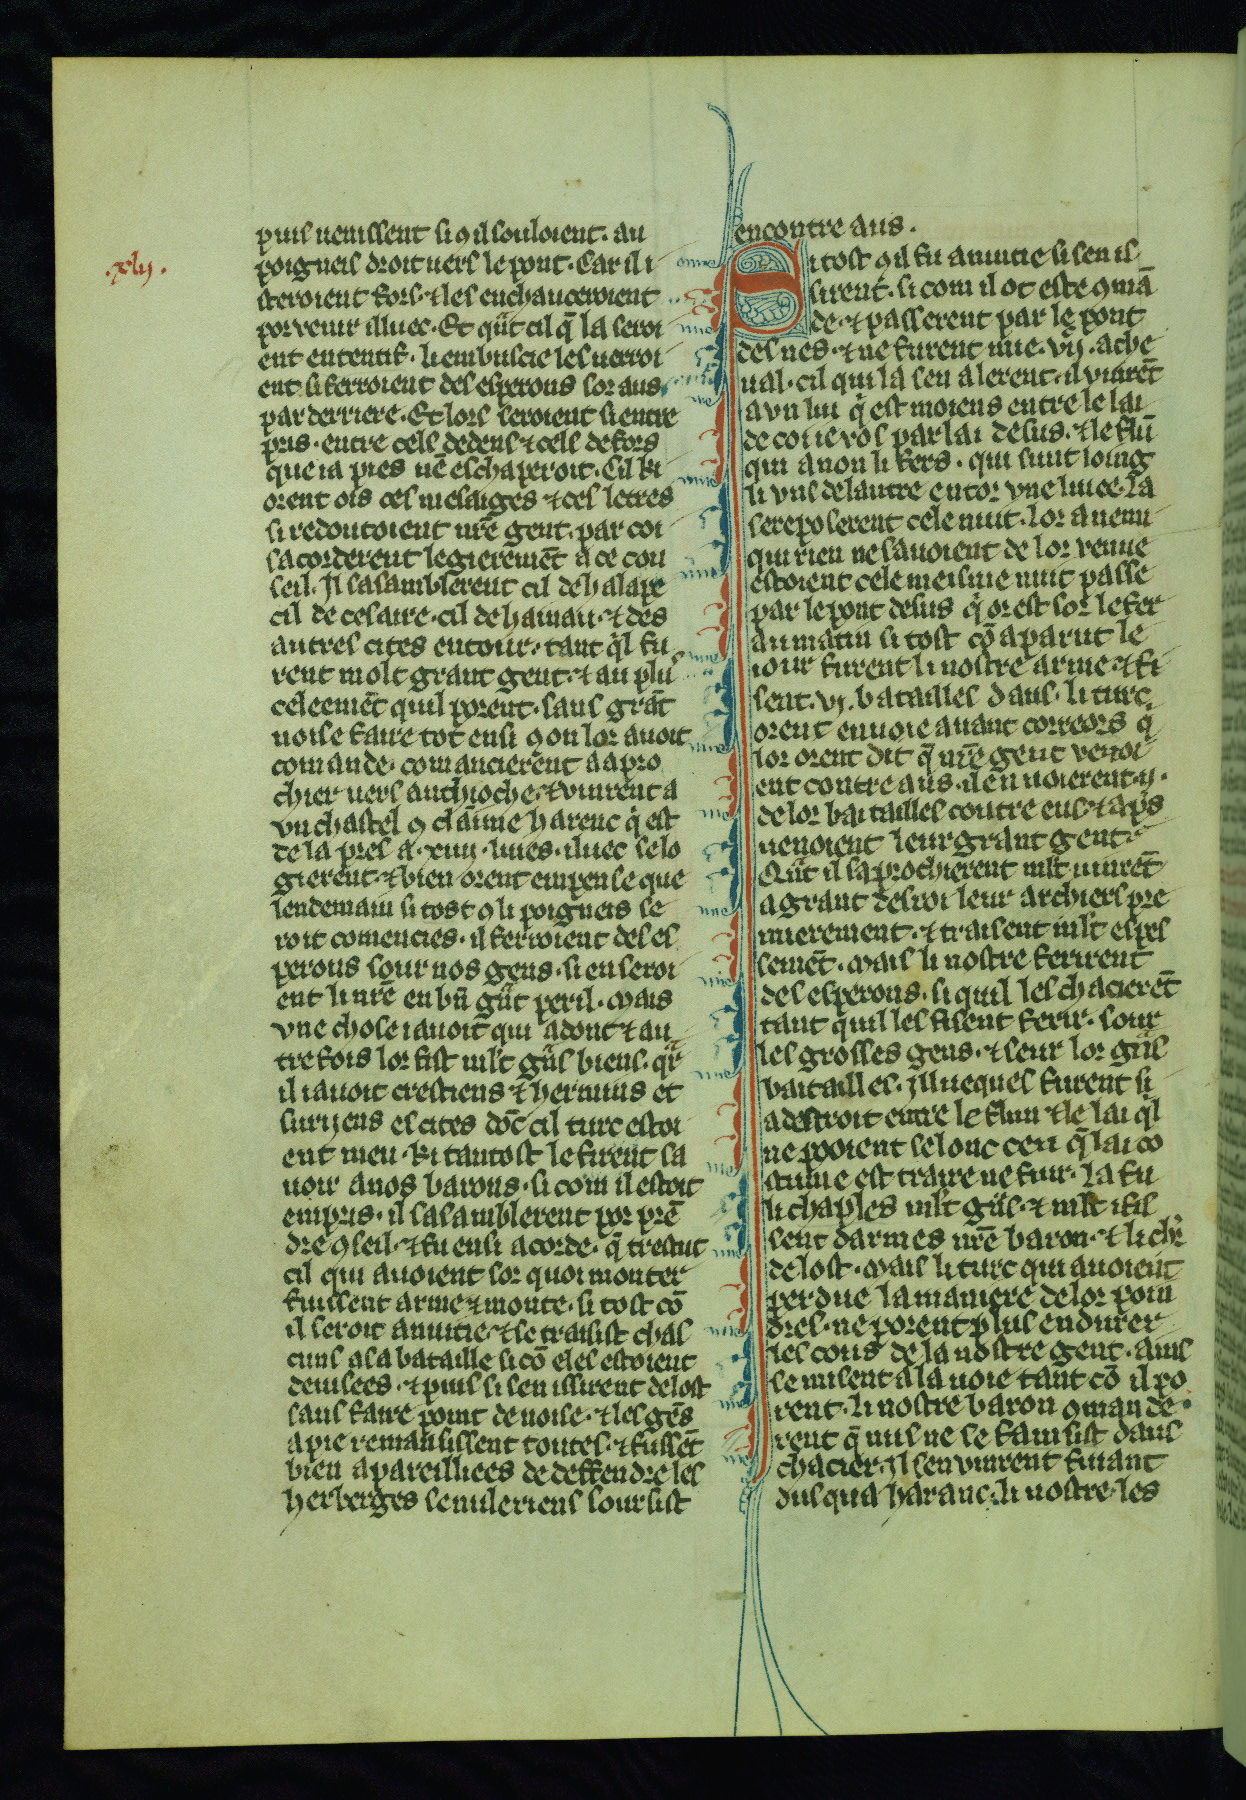 .xlij.
puis uenissent si ꝯ il souloient. au
poigneis droit uers le pont. Car il i
steroient fors. ⁊ les enchauceroient
por venir illuec. Et qͣnt cil q̃ la seroi
ent ententif. li embuscie les uerroi
ent si ferroient des esperons sor aus
par derriere. Et lors seroient si entre
pris. entre cels dedens ⁊ cels defors
que ia pies nẽ eschaperoit. Cil ki
orent ois ces mesaiges ⁊ ces letres
si redoutoient nr̃e gent. par coi
sacorderent legieremẽt a ce con
seil. Il sasamblerent cil de halape
cil de cesaire. cil de haman. ⁊ des
autres cites entour. tant qͥl fu
rent molt grant gent. ⁊ au plus
celeemẽt quil porent. sans grãt
noise faire tot ensi ꝯ on lor auoit
comande. comancierent a apro
chier uers anthioche. ⁊ vinrent a
vn chastel ꝯ claimme harenc qͥ est
de la pres a .xiiij. liues. iluec se lo
gierent. ⁊ bien orent empense que
lendemain si tost ꝯ li poigneis se
roit comencies. il ferroient des es
perons sour nos gens. si en seroi
ent li nr̃e en bñ gͣnt peril. Mais
vne chose i auoit qui adont ⁊ au
trefois lor fist ml̃t gͣns biens. qͣr
il i auoit crestiens ⁊ hermins et
suryens es cites dõt cil turc estoi
ent meu. ki tantost le firent sa
uoir a nos barons. si com il estoit
empris. il sasamblerent por prẽ
dre ꝯseil. ⁊ fu ensi acorde. q̃ trestuit
cil qui auoient sor quoi monter
fuissent arme ⁊ monte. si tost cõ
il seroit anuitie. ⁊ se traisist chas
cuns a sa bataille si cõ eles estoient
deuisees. ⁊ puis si sen ississent de lost
sans faire point de noise. ⁊ les gẽs
a pie remansissent toutes. ⁊ fussẽt
bien apareilliees de deffendre les
herberges se nule riens soursist
encontre aus.
Si tost ꝯ il fu anuitie si sen is
sirent. si com il ot este ꝯmã
de. ⁊ passerent par le pont
des nes. ⁊ ne furent mie .vij. a che
ual. cil qui la sen alerent. il vinrẽt
a vn liu qͥ est moiens entre le lai
de couevos par lai desus. ⁊ le flũ
qui a non li fers. qui sunt loing
li vns de lautre entor vne liuee. la
se reposerent cele nuit. lor anemi
qui rien ne sauoient de lor venue
estoient cele meisme nuit passe
par le pont desus qͥ or est sor le fer
au matin si tost cõ aparut le
iour furent li nostre arme. ⁊ fi
sent .vj. batailles daus. li turc
orent enuoie auant correors qͥ
lor orent dit q̃ nr̃e gent venoi
ent contre aus. il enuoierent .ij.
de lor baitailles contre eus. ⁊ aps̃
uenoient leur grant gent.
Qͣnt il saprochierent ml̃t uinrẽt
a grant desroi leur archiers pre
mierement. ⁊ traisent ml̃t espes
semẽt. Mais li nostre ferirent
des esperons. si quil les chacierẽt
tant quil les fisent ferir. sour
les grosses gens. ⁊ seur lor gͣns
baitailles. Illueques furent si
a destroit entre le flun ⁊ le lai qͥl
ne pooient selonc ceu q̃ lai co
stume est traire ne fuir. la fu
li chaples ml̃t gͣns. ⁊ ml̃t i fis
sent darmes nr̃e baron. ⁊ li chr̃
de lost. Mais li turc qui auoient
perdue la maniere de lor poin
dres. ne porent plus endurer
les cous de la nostre gent. ains
se misent a la uoie tant cõ il po
rent. li nostre baron ꝯmande
rent q̃ nus ne se fainsist daus
chacier. Il sen vinrent fuiant
dusqua haranc. li nostre les